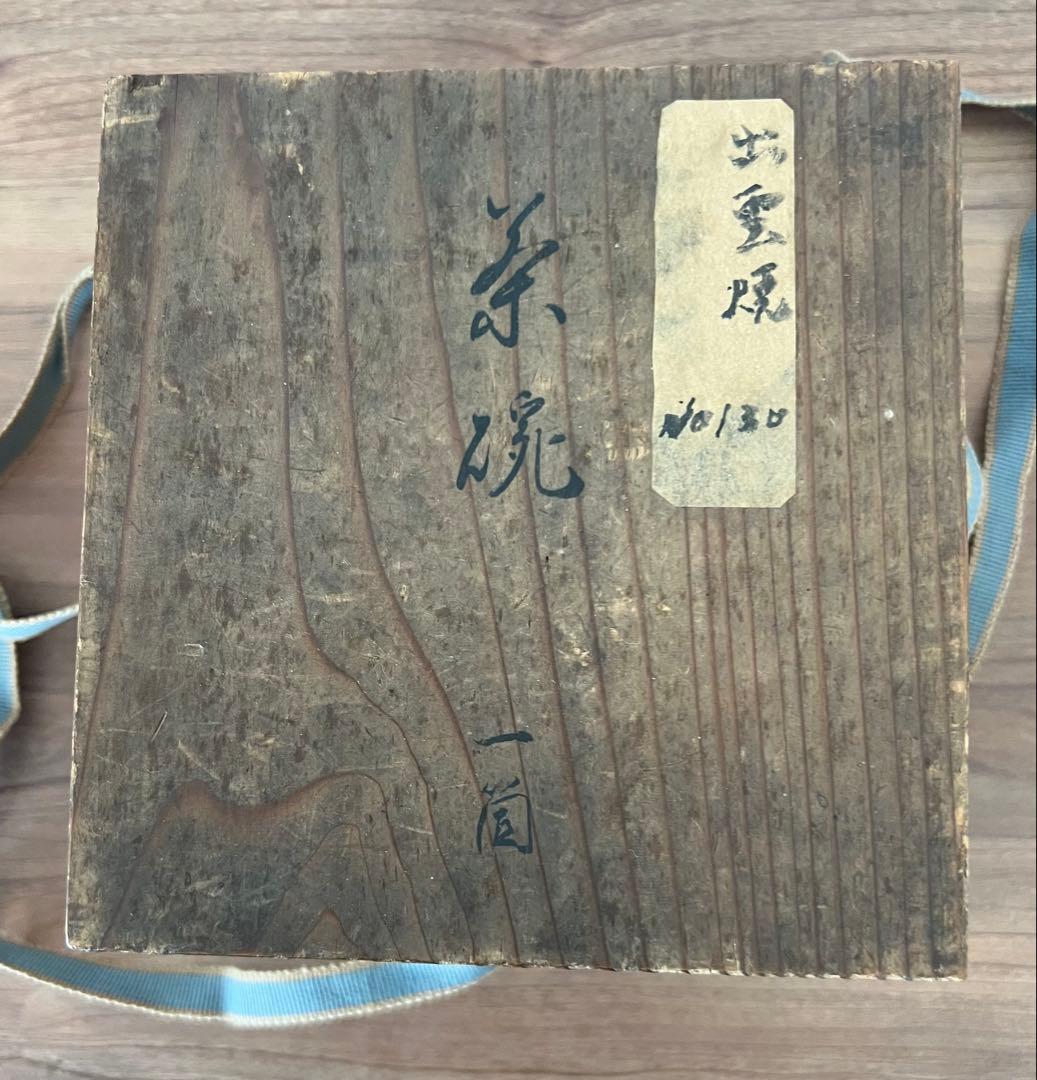 出雲焼
No130
茶碗
一箇